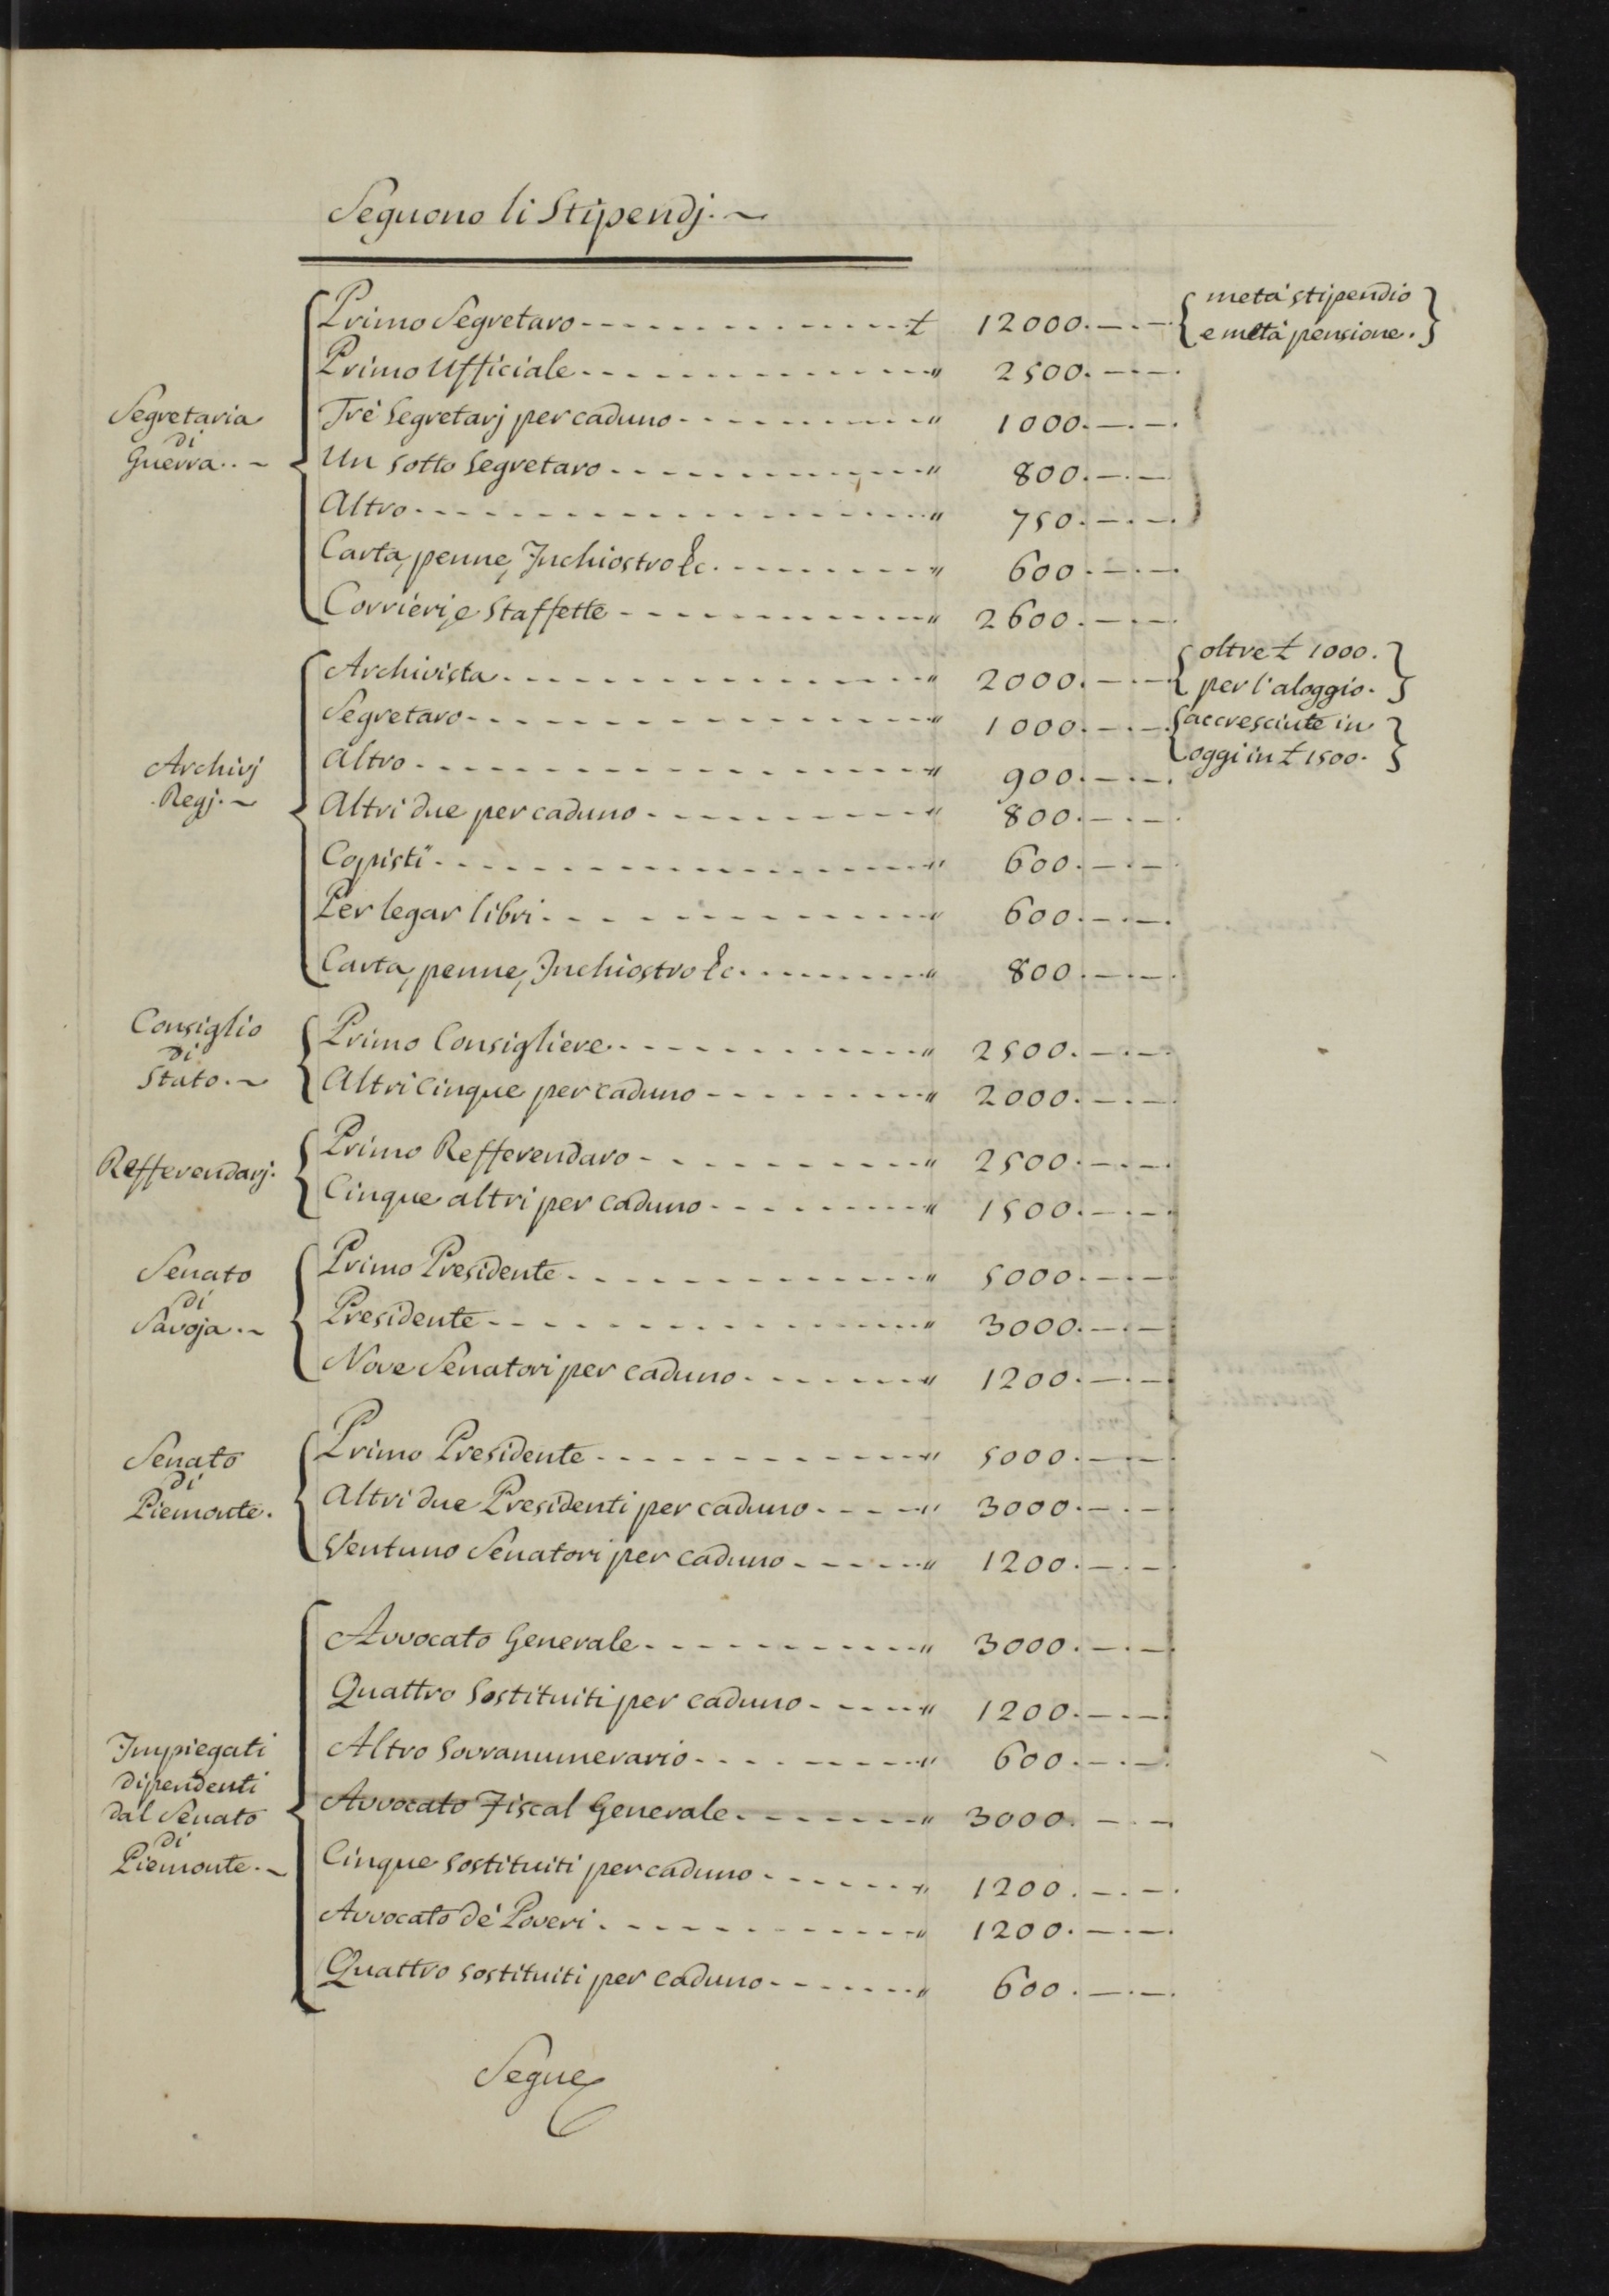 Seguono li Stipendj. ~
Segretaria
di
Guerra.. ~
Primo Segretaro - - - - - - - - - - - - - - £ 12000. — . — metà stipendio
e metà pensione.
Primo Ufficiale - - - - - - - - - - - - - - " 2500. — . — .
Trè Segretarj per caduno - - - - - - - - - - " 1000. — . — .
Un Sotto Segretaro - - - - - - - - - - - - - " 800. — . —
Altro - - - - - - - - - - - - - - - - - - - " 750. — . — .
Carta, penne, Inchiostro &c. - - - - - - - - - " 600. — . — .
Corrieri, e Staffette - - - - - - - - - - - - " 2600. — . — .
Archivj
Regj. ~
Archivista - - - - - - - - - - - - - - - - - " 2000. — . — oltre £ 1000.
per l'aloggio.
Segretaro - - - - - - - - - - - - - - - - - - " 1000. — . — accresciute in
oggi in £ 1500.
Altro - - - - - - - - - - - - - - - - - - - " 900. — . — .
Altri due per caduno - - - - - - - - - - - - " 800. — . — .
Copisti - - - - - - - - - - - - - - - - - - " 600. — . —
Per legar libri - - - - - - - - - - - - - - - " 600. — . — .
Carta, penne, Inchiostro &c. - - - - - - - - - " 800. — . — .
Consiglio
di
Stato. ~
Primo Consigliere - - - - - - - - - - - - - " 2500. — . — .
Altri Cinque per caduno - - - - - - - - - - " 2000. — . — .
Refferendarj.
Primo Refferendaro - - - - - - - - - - - - " 2500. — . — .
Cinque altri per caduno - - - - - - - - - - " 1500. — . — .
Senato
di
Savoja. ~
Primo Presidente - - - - - - - - - - - - - - " 5000. — . —
Presidente - - - - - - - - - - - - - - - - - " 3000. — . —
Nove Senatori per caduno - - - - - - - - - " 1200. — . —
Senato
di
Piemonte.
Primo Presidente - - - - - - - - - - - - - " 5000. — . — .
Altri due Presidenti per caduno - - - - - " 3000. — . — .
Ventuno Senatori per caduno - - - - - - " 1200. — . — .
Impiegati
dipendenti
dal Senato
di
Piemonte. ~
Avvocato Generale - - - - - - - - - - - - " 3000. — . — .
Quattro Sostituiti per caduno - - - - - " 1200. — . — .
Altro Sovranumerario - - - - - - - - - - " 600. — . — .
Avvocato Fiscal Generale - - - - - - - - " 3000. — . —
Cinque Sostituiti per caduno - - - - - - - " 1200. — . — .
Avvocato de' Poveri - - - - - - - - - - - - " 1200. — . — .
Quattro sostituiti per caduno - - - - - - - " 600. — . — .
Segue